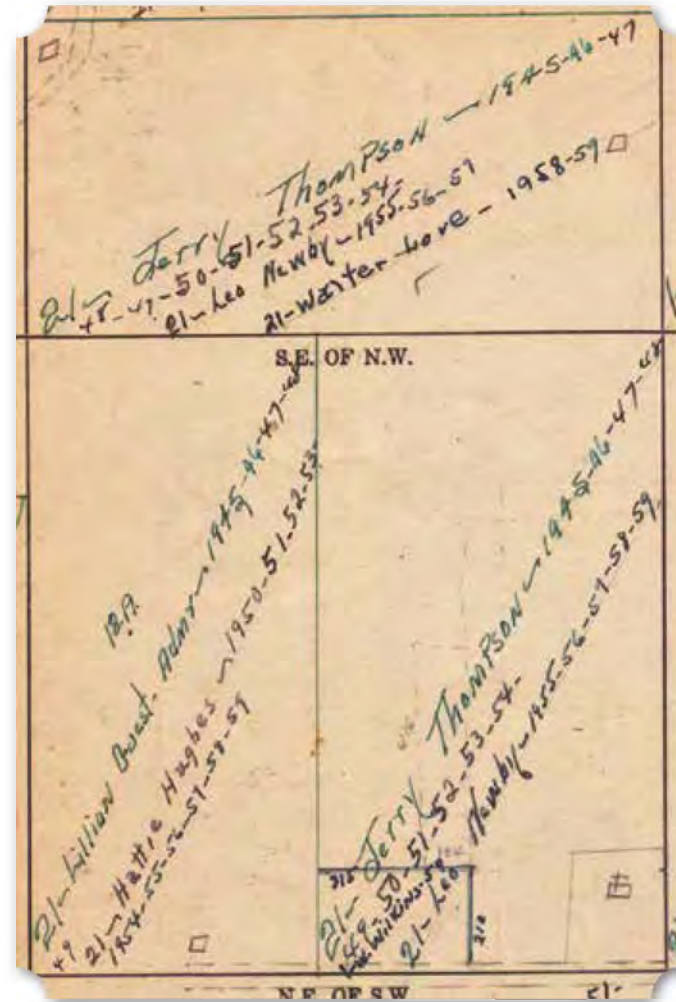 21- Jerry Thompson - 1945-46-47
48-49-50-51-52-53-54-
21- Leo Newby - 1955-56-57
21- Walter Love - 1958-59
S.E. OF N.W.
18 A.
21- Lillian Admr - 1945-46-47-48
49
21- Hattie Hughes - 1950-51-52-53-
1954-55-56-57-58-59
21- Jerry Thompson - 1945-46-47-48
49-50-51-52-53-54-
Wilkins-59
21- Leo Newby - 1955-56-57-58-59
315
210
N.E. OF S.W.
21-